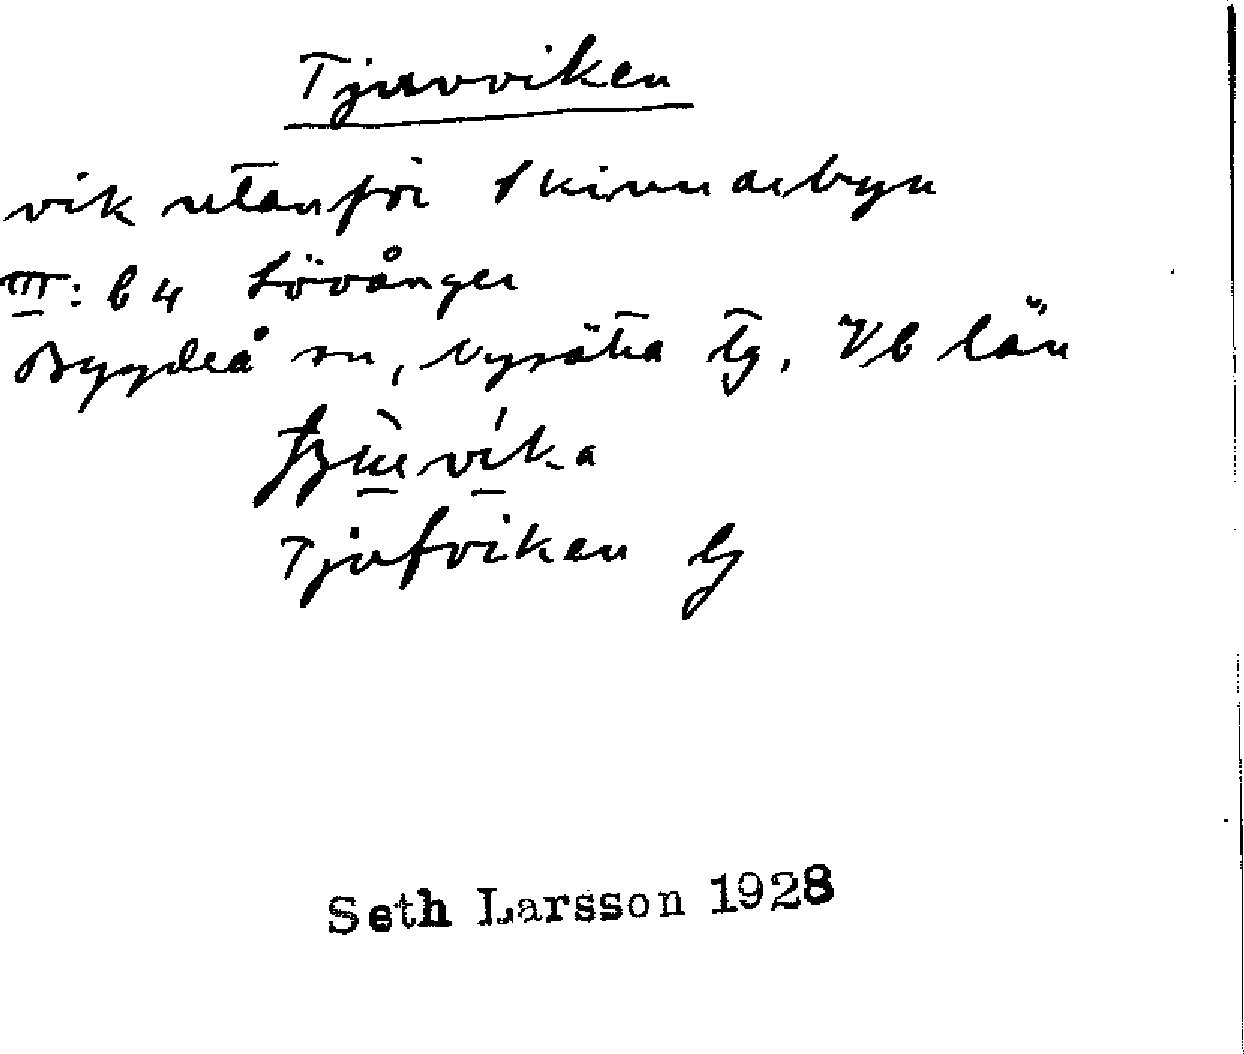 Tjuvviken
vik utanför Skinnarbyn
III: b 4 Lövånger
Bygdeå sn, Nysätra tg, Vb län
vika
Tjufviken
Seth Larsson 1928